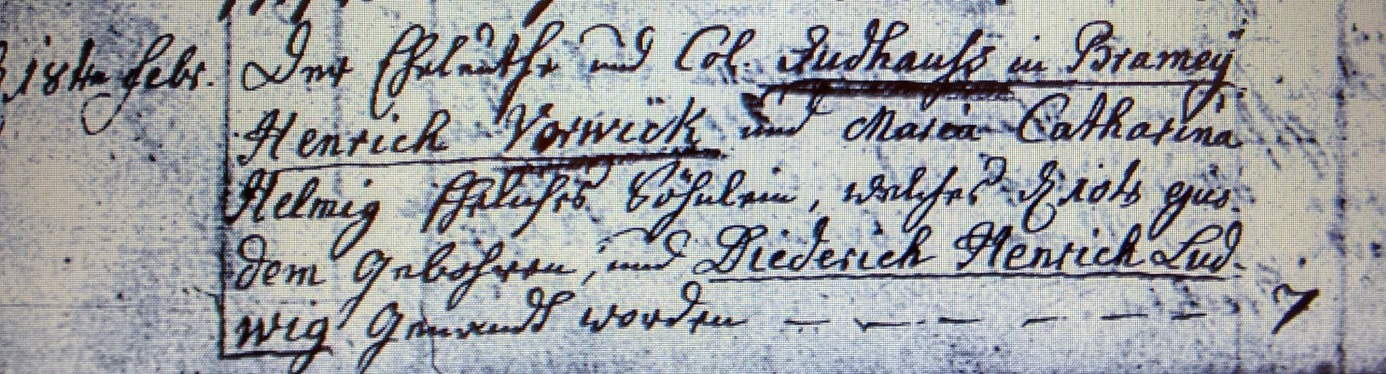 18ten Febr. Der Eheleuthe und Col. Sudhauss in Bramey
Henrich Vorwick und Maria Catharina
Helmig Eheliches Söhnlein, welches d. 10ts ejus-
dem Gebohren, und Diederich Henrich Lud-
wig Genandt worden — — — — — — 7